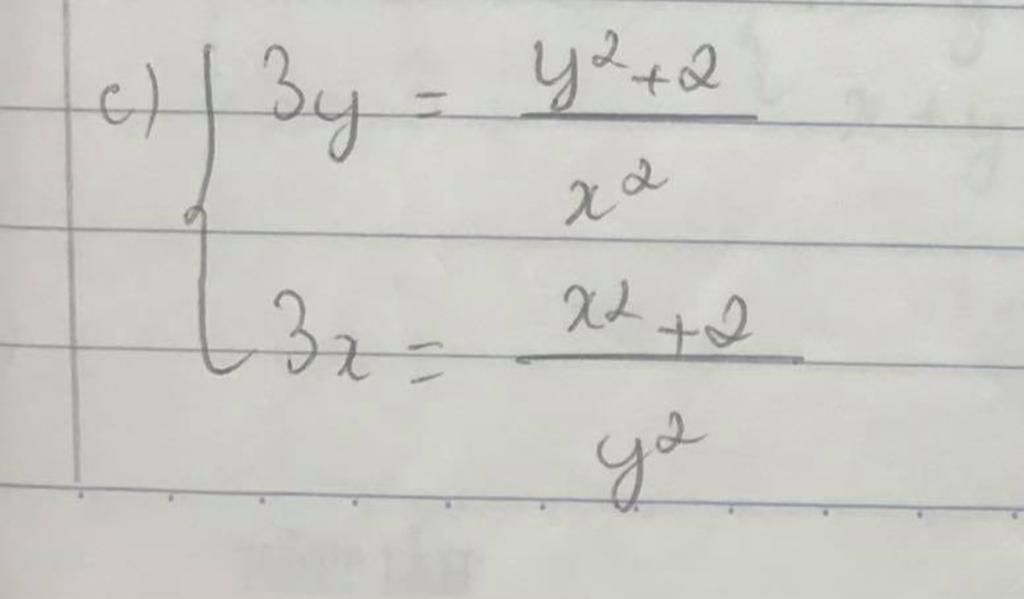 c) { 3y = (y² + 2) / x²
3x = (x² + 2) / y²